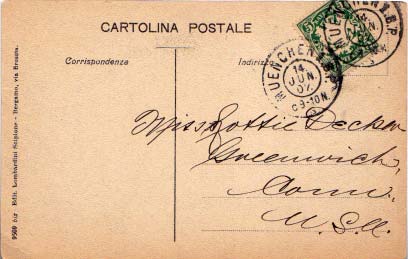 CARTOLINA POSTALE
Corrispondenza
Indirizzo
MUENCHEN
14
JUN.
07
89-10N.
Miss Lottie Decker
Greenwich,
Conn.
U.S.A.
9509 biz - Edit. Lombardini Scipione - Bergamo, via Broseta.